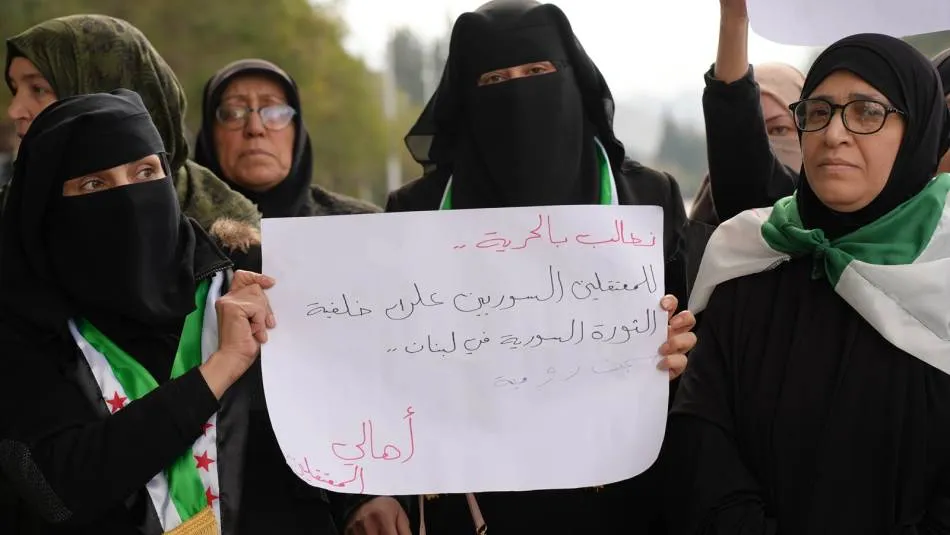 نطالب بالحرية ..
للمعتقلين السوريين على خلفية
الثورة السورية في لبنان ..
سجن رومية
أهالي
المعتقلين